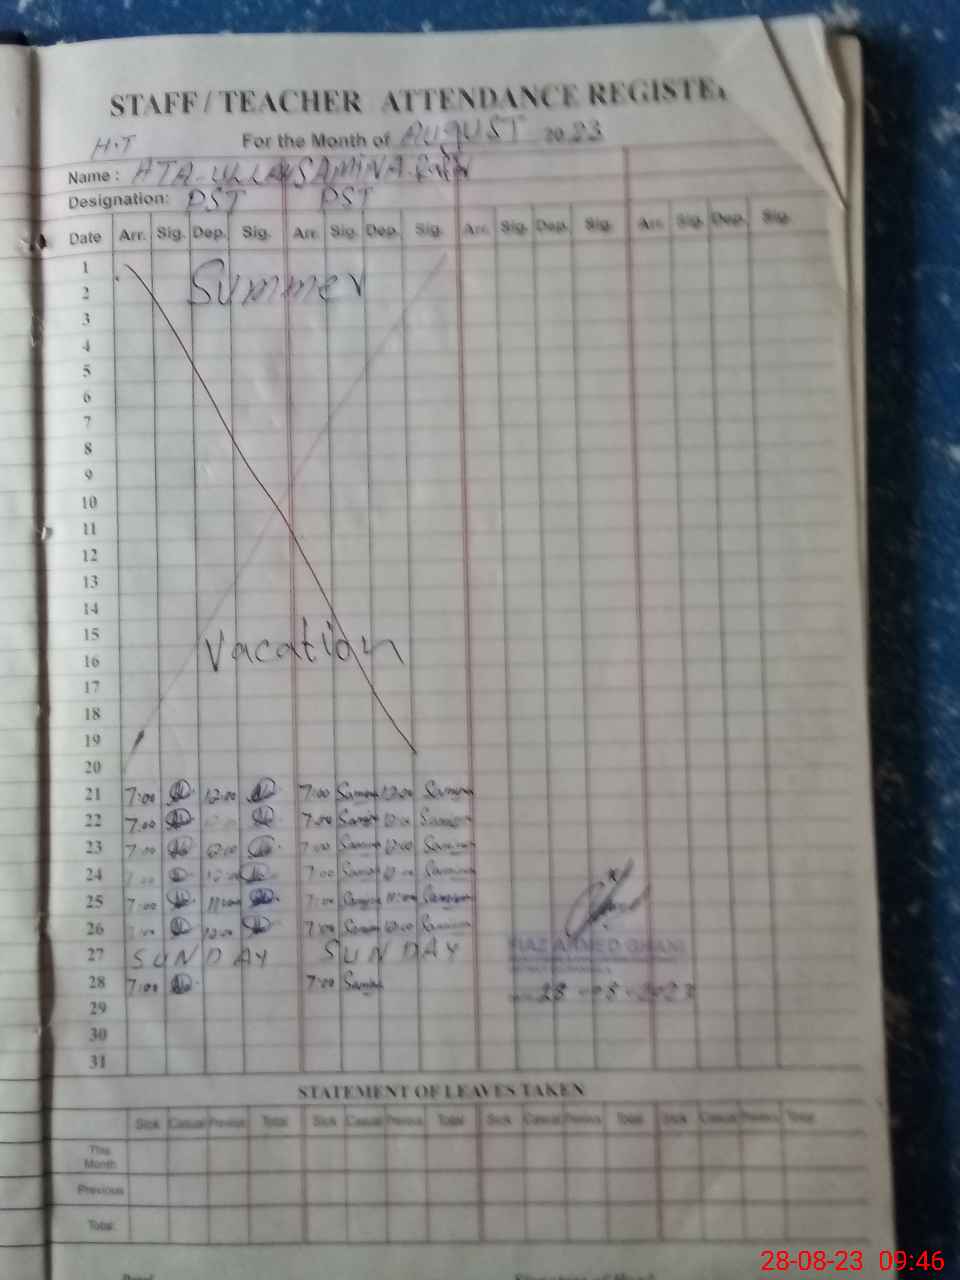 STAFF / TEACHER ATTENDANCE REGISTE
H.T For the Month of AUGUST 2023
Name : ATA-ULLAH SAMINA
Designation: PST PST
Date Arr. Sig. Dep. Sig. Arr. Sig. Dep. Sig. Arr. Sig. Dep. Sig. Arr. Sig. Dep. Sig.
1
Summer
2
3
4
5
6
7
8
9
10
11
12
13
14
15
Vacation
16
17
18
19
20
21 7:00 12:00 7:00 Samina 12:00 Samina
22 7:00 12:00 7:00 Samina 12:00 Samina
23 7:00 12:00 7:00 Samina 12:00 Samina
24 7:00 12:00 7:00 Samina 12:00 Samina
25 7:00 11:00 7:00 Samina 11:00 Samina
26 7:00 12:00 7:00 Samina 12:00 Samina
RIAZ AHMED GHANI
27 SUNDAY SUNDAY
28 7:00 7:00 Samina
28-08-2023
29
30
31
STATEMENT OF LEAVES TAKEN
Sick Casual Previous Total Sick Casual Previous Total Sick Casual Previous Total Sick Casual Previous Total
This
Month
Previous
Total
28-08-23 09:46